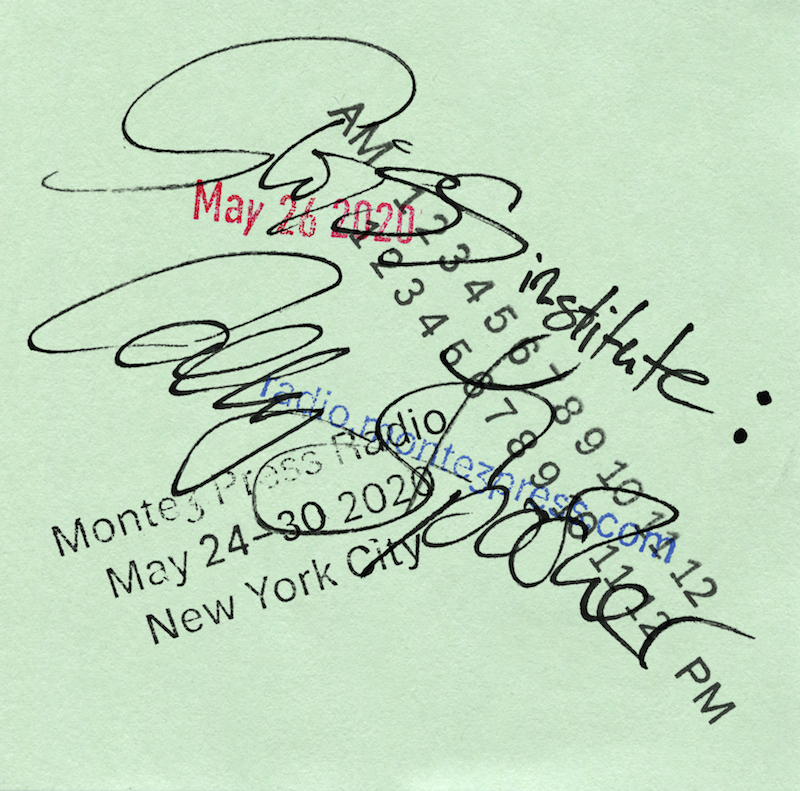 Swiss
institute:
Cally
Spooner
May 26 2020
AM
1 2 3 4 5 6 7 8 9 10 11 12
1 2 3 4 5 6 7 8 9 10 11 12
PM
radio.montezpress.com
Montez Press Radio
May 24–30 2020
New York City